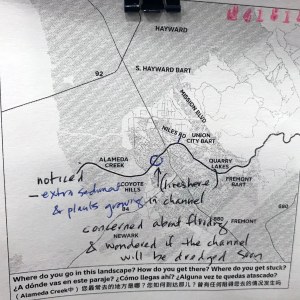 HAYWARD
92
S. HAYWARD BART
MISSION BLVD
NILES RD
UNION
CITY BART
ALAMEDA
CREEK
QUARRY
LAKES
noticed
(live here)
FREMONT
BART
- extra sediment
COYOTE
HILLS
& plants growing in channel
84
880
FREMONT
concerned about flooding
NEWARK
& wondered if the channel
will be dredged soon
Where do you go in this landscape? How do you get there? Where do you get stuck?
¿A dónde vas en este paraje? ¿Cómo llegas ahí? ¿Alguna vez te quedas atascado?